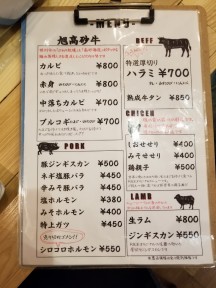 MENU
旭高砂牛
カルビ ¥800
赤身 ¥800
中落ちカルビ ¥700
プルコギ ¥700
BEEF
特選厚切り
ハラミ ¥700
熟成牛タン ¥850
PORK
豚ジンギスカン ¥500
ネギ塩豚バラ ¥450
辛みそ豚バラ ¥450
塩ホルモン ¥380
みそホルモン ¥400
特上ガツ ¥450
シロコロホルモン ¥550
CHICKEN
しおせせり ¥400
みそせせり ¥400
¥400
LAMB
生ラム ¥800
ジンギスカン ¥550